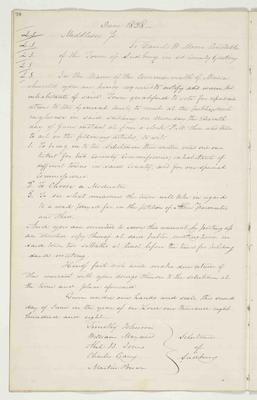 June 1838
Middlesex Ss
To David H. Moore Constable
of the Town of Sudbury in sd County Greeting
In the Name of the Commonwealth of Massa
you are hereby required to notify and warn the
inhabitants of said Town qualified to vote for
to the General Court to meet at the
in said Sudbury on Monday the Eleventh
day of June instant at four o clock P.M. then and there
to act on the following articles to wit
1. To bring in to the Selectmen their votes on one
list for two County Commissioners, inhabitants of
different towns in said County, and for one special
Commissioner
2. To Choose a Moderator
3. To see what measures the town will take in regard
to a road prayed for in the petition of
and others
And you are directed to serve this warrant by posting up
an attested copy thereof at each public meeting house in
said town two Sabbaths at least before the time for holding
said meeting
Hereof fail not and make due return of
this warrant with your doings thereon to the Selectmen at
the time and place aforesaid
Given under our hands and seals this second
day of June in the year of our Lord one thousand eight
hundred and eight
William Maynard
Selectmen
of
Sudbury